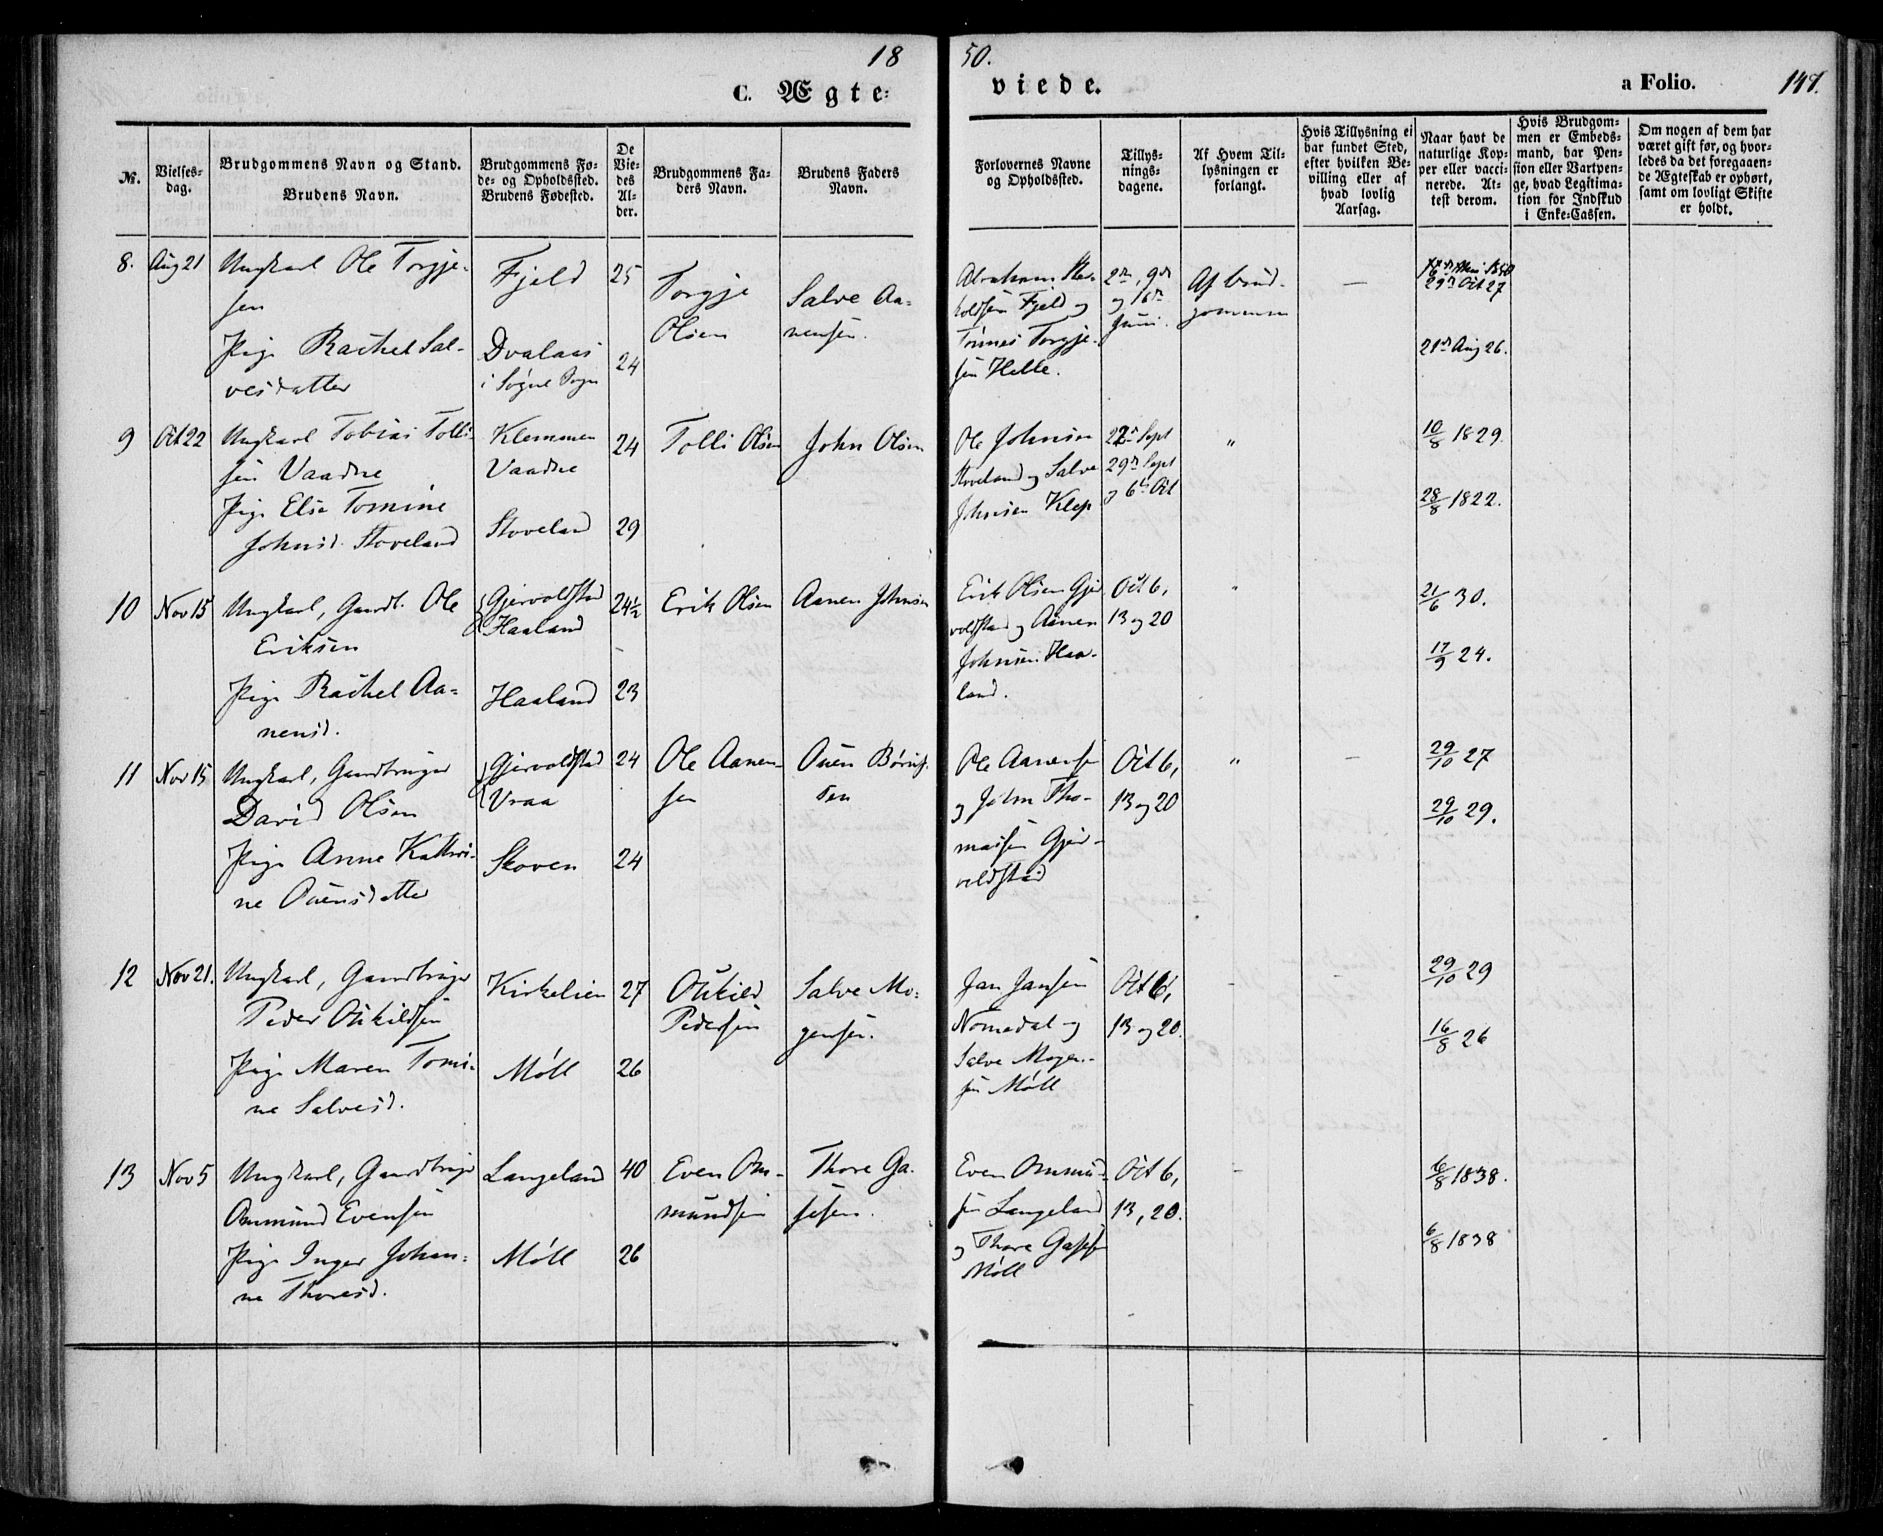 18
50.
C. Ægte-
viede.
a Folio.
147.
№.
Vielses-
dag.
Brudgommens Navn og Stand.
Brudens Navn.
Brudgommens Fø-
de- og Opholdssted.
Brudens Fødested.
De
Vie-
des
Al-
der.
Brudgommens Fa-
ders Navn.
Brudens Faders
Navn.
Forlovernes Navne
og Opholdssted.
Tillys-
nings-
dagene.
Af Hvem Til-
lysningen er
forlangt.
Hvis Tillysning ei
har fundet Sted,
efter hvilken Be-
villing eller af
hvad lovlig
Aarsag.
Naar havt de
naturlige Kop-
per eller vacci-
nerede. At-
test derom.
Hvis Brudgom-
men er Embeds-
mand, har Pen-
sion eller Vartpen-
ge, hvad Legitima-
tion for Indskud
i Enke-Cassen.
Om nogen af dem har
været gift før, og hvor-
ledes da det foregaaen-
de Ægteskab er ophørt,
samt om lovligt Skifte
er holdt.
8. Aug 21
Ungkarl Ole Torgje-
sen
Pige Rachel Sal-
vesdatter
Fjeld
Dvalaas
i Søgne Sogn
25
24
Torgje
Olsen
Salve Aa-
nensen.
Abraham
Fjeld og
Tønnes Torgje-
sen Helle.
2den, 9de
og 16de
Juni.
Af Brud-
gommen
—
29de Oct 27
21de Aug 26.
9 Oct 22
Ungkarl Tobias Tolli-
sen Vaadne
Pige Else Tomine
Johnsd. Stoveland
Klemmen
Vaadne
Stoveland
24
29
Tolli Olsen
John Olsen
Ole Johnsen
Stoveland og Salve
Johnsen Klep
22de Sept
29de Sept
og 6te Oct
"
10/8 1829.
28/8 1822.
10 Nov 15
Ungkarl, Gaardb. Ole
Eriksen
Pige Rachel Aa-
nensd.
Gjervoldstad
Haaland
Haaland
24½
23
Erik Olsen
Aanen Johnsen
Erik Olsen Gjer
voldstad og Aanen
Johnsen Haa-
land.
Oct 6,
13 og 20
"
21/6 30.
17/9 24.
11 Nov 15
Ungkarl, Gaardbruger
David Olsen
Pige Anne Kathri-
ne Ouensdatter
Gjervoldstad
Vraa
Skoven
24
24
Ole Aanen-
sen
Ouen Børuf-
sen
Ole Aanensen
og John Tho-
massen Gjer-
voldstad
Oct 6,
13 og 20
"
—
29/10 27
29/10 29.
12 Nov 21.
Ungkarl, Gaardbruger
Peder Oukildsen
Pige Maren Tomi-
ne Salvesd.
Kirkelien
Möll
27
26
Oukild
Pedersen
Salve Mo-
gensen.
Jan Jansen
Nomedal og
Salve Mogen-
sen Möll
Oct 6,
13 og 20.
29/10 29
16/8 26
13 Nov 5
Ungkarl, Gaardbruger
Ommund Evensen
Pige Inger Johan-
ne Thoresd.
Langeland
Möll
40
26
Even Om-
mundsen
Thore Ga-
sesen.
Even Ommund-
sen Langeland
og Thore
Möll
Oct 6,
13, 20.
6/8 1838.
6/8 1838